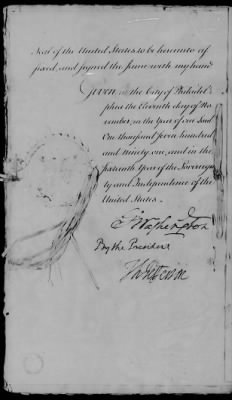 Seal of the United States to be hereunto af
fixed, and signed the same with my hand
Given at the City of Philadel
phia the Eleventh day of No
vember, in the Year of our Lord
One thousand seven hundred
and ninety one, and in the
sixteenth Year of the Sovereign
ty and Independence of the
United States.
G Washington
By the President
Th Jefferson